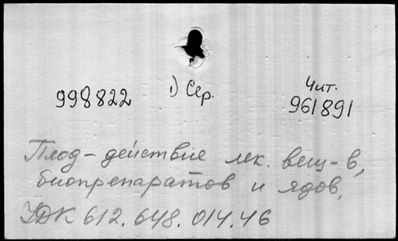 1) Сер. Чит.
998822 961891
Плод - действие лек. вещ-в,
биопрепаратов и ядов.
УДК 612.648.014.46